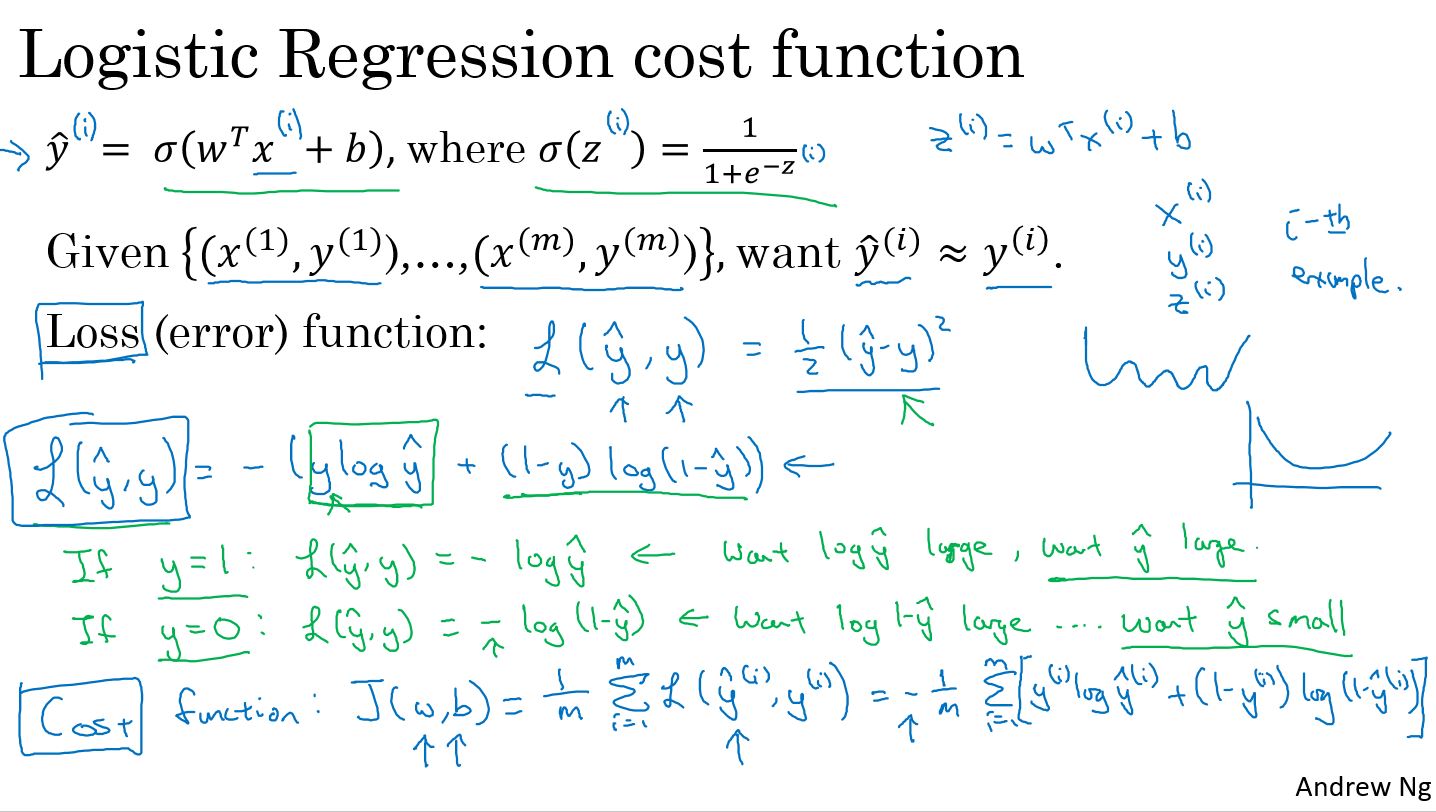 Logistic Regression cost function
→ ŷ^(i) = σ(w^T x^(i) + b), where σ(z^(i)) = 1/(1+e^−z^(i))   z^(i) = w^T x^(i) + b
x^(i)
y^(i)
z^(i)
i-th
example.
Given {(x^(1), y^(1)),…,(x^(m), y^(m))}, want ŷ^(i) ≈ y^(i).
Loss (error) function: ℒ(ŷ, y) = 1/2 (ŷ-y)²
ℒ(ŷ, y) = - (y log ŷ + (1-y) log(1-ŷ)) ←
If y=1: ℒ(ŷ, y) = - log ŷ ← Want log ŷ large, want ŷ large.
If y=0: ℒ(ŷ, y) = - log (1-ŷ) ← Want log 1-ŷ large .... want ŷ small
Cost function: J(w,b) = 1/m Σ_{i=1}^m ℒ(ŷ^(i), y^(i)) = - 1/m Σ_{i=1}^m [y^(i) log ŷ^(i) + (1-y^(i)) log(1-ŷ^(i))]
Andrew Ng